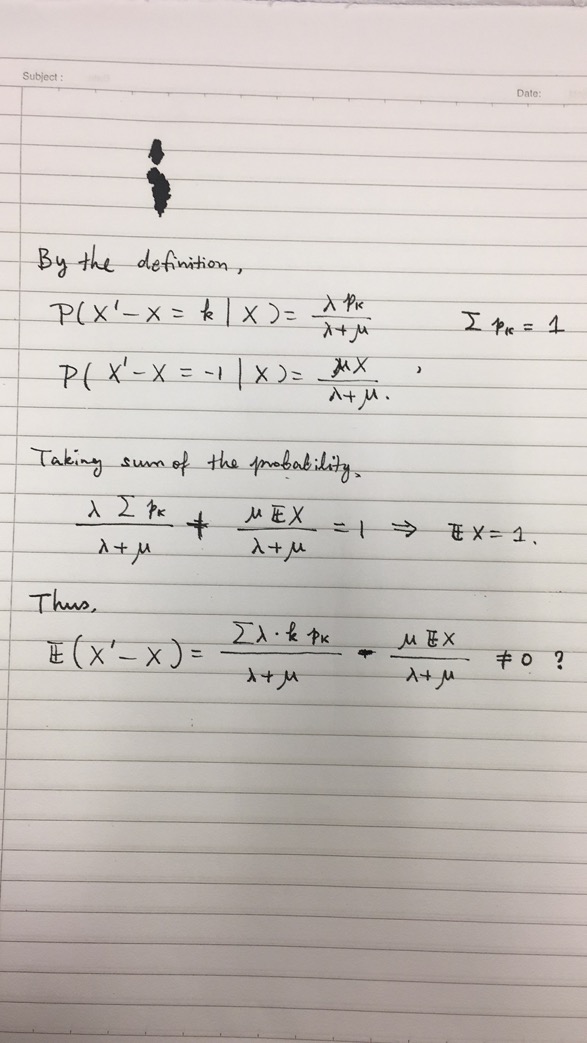 Subject :
Date:
By the definition,
P(X'-X = k | X) = λ pₖ / λ+μ Σ pₖ = 1
P(X'-X = -1 | X) = μX / λ+μ. ,
Taking sum of the probability,
λ Σ pₖ / λ+μ + μ 𝔼X / λ+μ = 1 ⇒ 𝔼X = 1.
Thus,
𝔼(X'-X) = Σλ·k pₖ / λ+μ - μ 𝔼X / λ+μ ≠ 0 ?